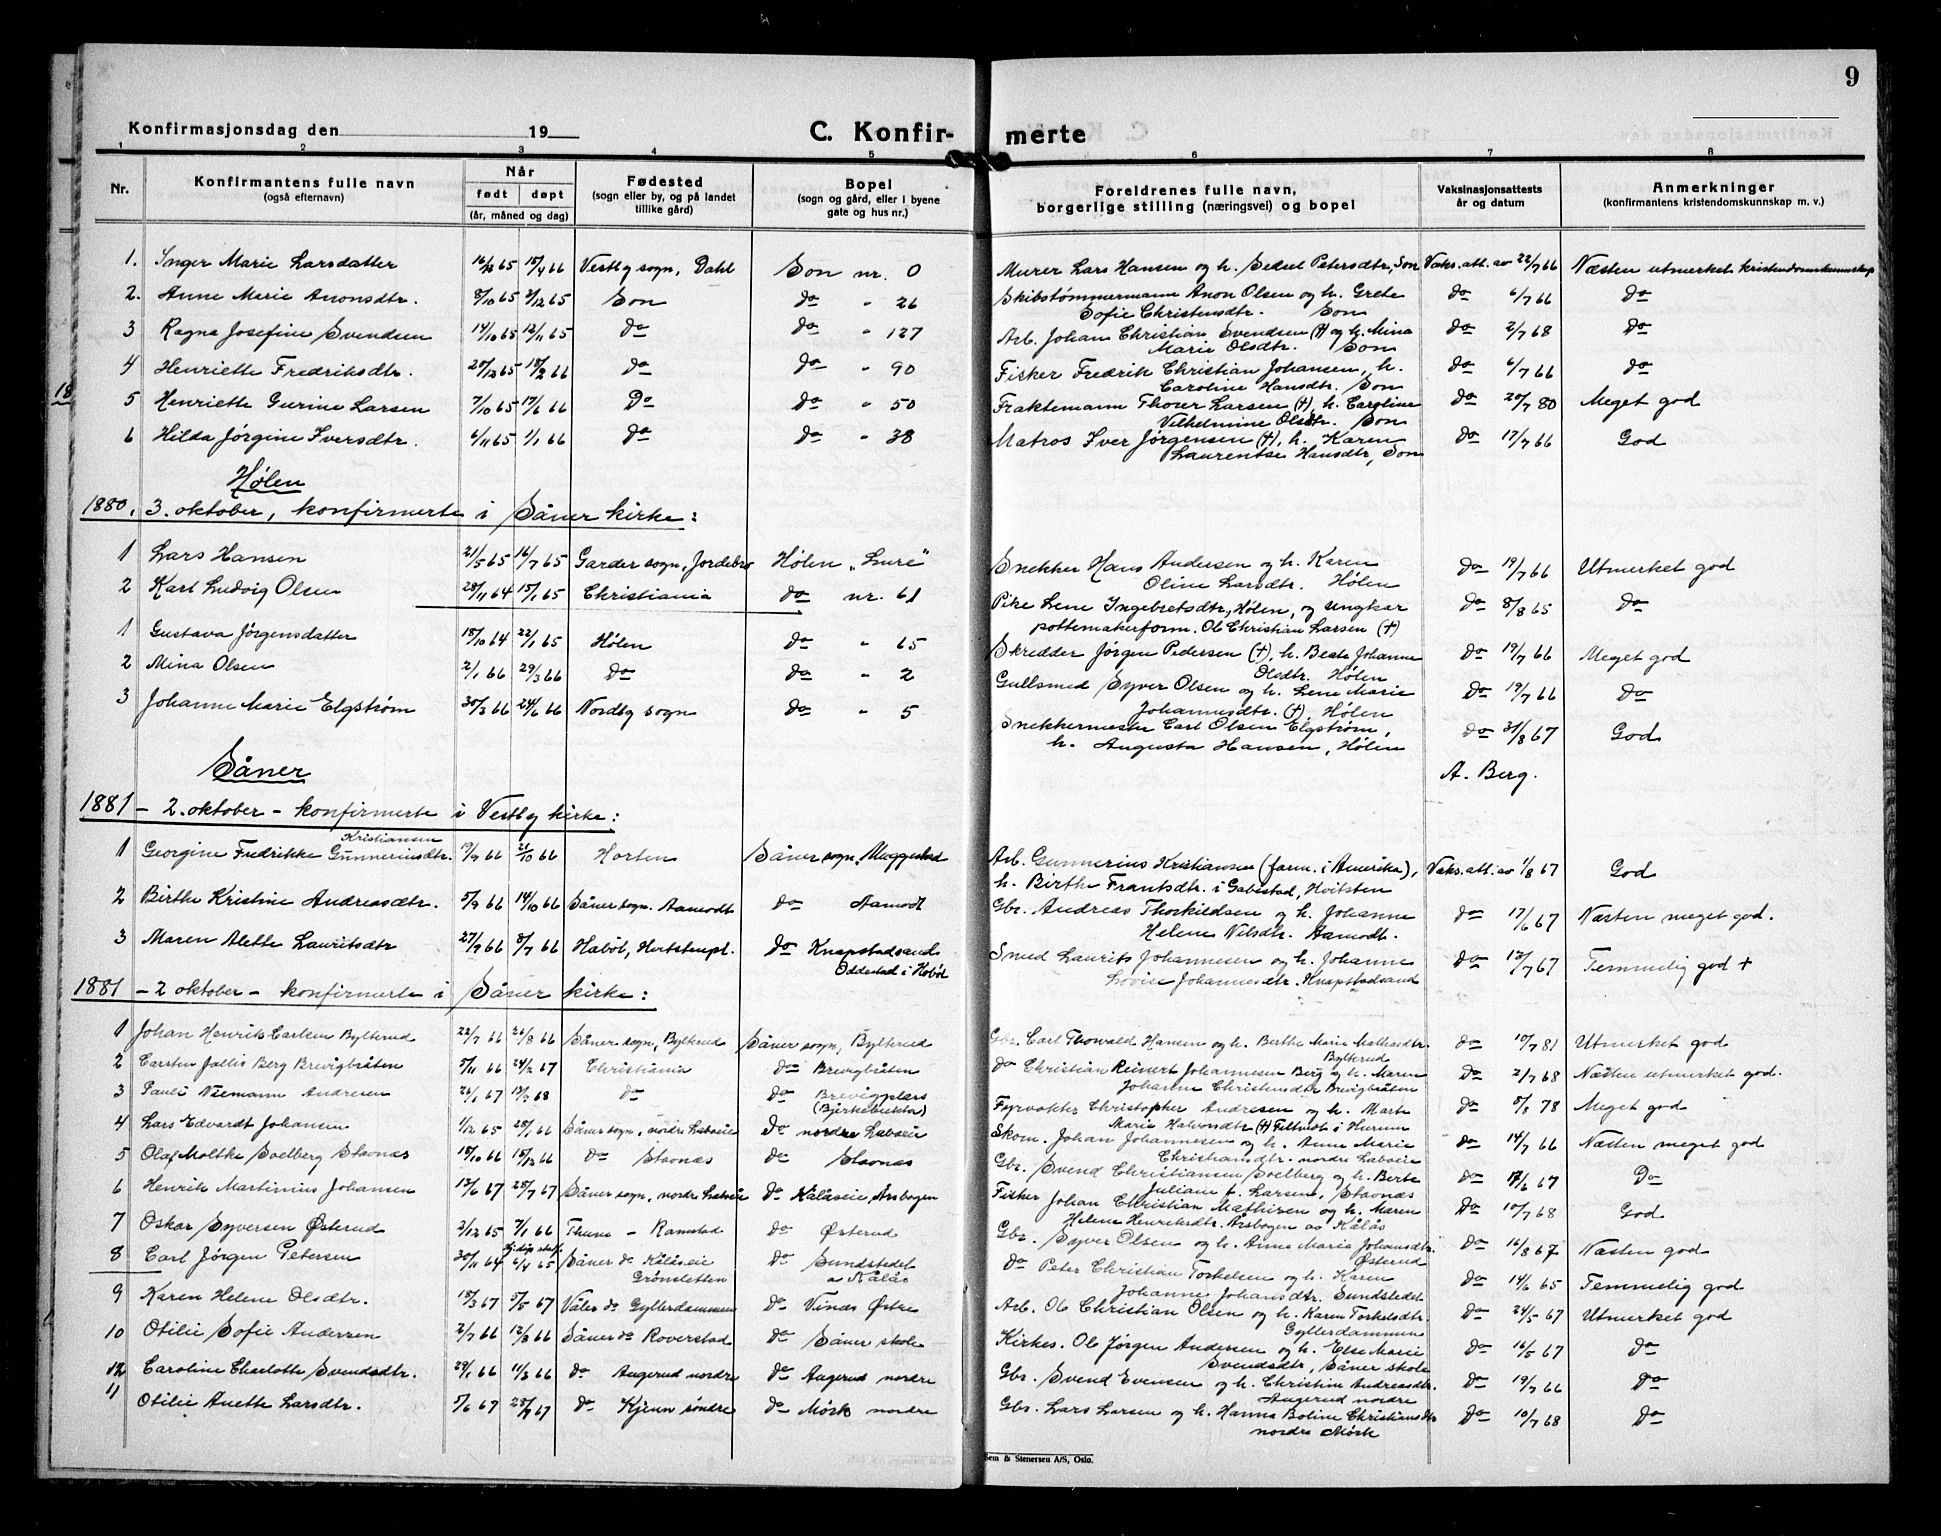 9
Konfirmasjonsdag den 19
C. Konfir- merte
1 2 3 4 5 6 7 8
Nr. Konfirmantens fulle navn (også efternavn) Når født døpt (år, måned og dag) Fødested (sogn eller by, og på landet tillike gård) Bopel (sogn og gård, eller i byene gate og hus nr.) Foreldrenes fulle navn, borgerlige stilling (næringsvei) og bopel Vaksinasjonsattests år og datum Anmerkninger (konfirmantens kristendomskunnskap m. v.)
1. Inger Marie Larsdatter 16/12 65 15/4 66 Vestby sogn, Dahl Son nr. 0 Murer Lars Hansen og h. Sedsel Petersdtr, Son Vaks.att. av 22/7 66 Næsten utmerket kristendomskunnskap
2. Anne Marie Anonsdtr. 8/10 65 3/12 65 Son do " 26 Skibstømmermann Anon Olsen og h. Grete Sofie Christensdtr. Son do 6/7 66 do
3 Ragna Josefine Svendsen 14/10 65 12/11 65 do do " 127 Arb. Johan Christian Svendsen (†) og h. Mina Marie Olsdtr. Son do 2/7 68 Do
4 Henriette Fredriksdtr. 20/12 65 18/2 66 do do " 90 Fisker Fredrik Christian Johansen, h. Caroline Hansdtr. Son do 6/7 66 do
18
5 Henriette Gurine Larsen 7/10 65 17/6 66 Do do " 50 Fraktemann Thorer Larsen (†), h. Caroline Vilhelmine Olsdtr. Son do 20/7 80 Meget god
6 Hilda Jørgine Iversdtr. 6/11 65 1/1 66 do do " 38 Matros Iver Jørgensen (†), h. Karen Laurentse Hansdtr, Son do 17/7 66 God
Hølen
1880, 3. oktober, konfirmerte i Såner kirke:
1 Lars Hansen 21/5 65 16/7 65 Garder sogn, Jordebro Hølen "Lure" Snekker Hans Andersen og h. Karen Oline Larsdtr. Hølen do 19/7 66 Utmerket god
2 Karl Ludvig Olsen 28/11 64 15/1 65 Christiania do nr. 61 Pike Lene Ingebretsdtr, Hølen, og ungkar pottemakerform. Ole Christian Larsen (†) do 8/8 65 do
1 Gustava Jørgensdatter 18/10 64 22/1 65 Hølen do " 65 Skredder Jørgen Pedersen (†), h. Beate Johanne Olsdtr. Hølen do 19/7 66 Meget god
2 Mina Olsen 2/1 66 29/3 66 do do " 2 Gullsmed Syver Olsen og h. Lene Marie Johannesdtr. (†), Hølen do 19/7 66 do
3 Johanne Marie Elgstrøm 30/3 66 24/6 66 Nordby sogn do " 5 Snekkermester Carl Olsen Elgstrøm, h. Augusta Hansen, Hølen do 31/8 67 God
Såner
A. Berg.
1881 - 2. oktober - konfirmerte i Vestby kirke:
1 Georgine Fredrikke Kristiansen Gunneriusdtr. 19/9 66 21/10 66 Horten Såner sogn, Meggestad Arb. Gunnerius Kristiansen (farm. i Amerika), h. Birthe Frantsdtr. i Gabestad, Hvitsten Vaks.att. av 1/8 67 God
2 Birthe Kristine Andreasdtr. 5/9 66 14/10 66 Såner sogn. Aamodt do Aamodt Gbr. Andreas Thorkildsen og h. Johanne Helene Nilsdtr. Aamodt. do 17/6 67 Næsten meget god.
3 Maren Alette Lauritsdtr 27/4 66 8/7 66 Habøl, do Knapstadsand Oddestad i Hobøl Smed Laurits Johannesen og h. Johanne Lovise Johannesdtr. Knapstadsand do 13/7 67 Temmelig god +
1881 - 2 oktober - konfirmerte i Såner kirke:
1 Johan Henrik Carlsen Bylterud 22/7 66 26/8 66 Såner sogn, Bylterud Såner sogn, Bylterud Gbr. Carl Thorvald Hansen og h. Berthe Marie Mathisdtr. Bylterud do 10/7 81 Utmerket god
2 Carsten Jallis Berg Brevigbråten 5/11 66 24/2 67 Christiania do Brevigbråten do Christian Reinert Johannesen Berg og h. Maren Johanne Christensdtr Brevigbråten do 2/7 68 Næsten utmerket god.
3 Pauli Niemann Andresen 26/1 67 13/3 68 do do Brevigplass (Bjerkebukta) Fyrvokter Christopher Andresen og h. Marte Marie Halvorsdtr (†) Filtvedt i Hurum do 8/8 78 Meget god
4 Lars Edvardt Johansen 1/12 65 28/1 66 Såner sogn, nordre Labøeie Do nordre Labøeie Skom. Johan Johannesen og h. Anne Marie Christiansdtr. nordre Labøeie do 14/7 66 Næsten meget god
5 Olaf Moltke Solberg Stavnæs 18/10 66 15/13 66 do Stavnæs do Stavnæs Gbr. Svend Christiansen Solberg og h. Berte Juliane f. Larsen, Stavnæs do 17/6 67 Do
6 Henrik Martinius Johansen 13/6 67 28/7 67 Såner sogn, nordre Labøeie do Kålåseie, Årsbogen Fisker Johan Christian Mathisen og h. Maren Helene Henriksdtr. Årsbogen av Kålås Do 10/7 68 God
7 Oskar Syversen Østerud 2/12 65 7/1 66 Thune - Ramstad do Østerud Gbr. Syver Olsen og h. Anne Marie Johansdtr. Østerud do 16/8 67 Næsten god
8 Carl Jørgen Petersen 30/11 64 6/4 65 Såner do Kålåseie Grønsletten do Sundstedet av Kålås do Peter Christian Torkelsen og h. Karen Johanne Johansdtr. Sundstedet do 14/6 65 Temmelig god
9 Karen Helene Olsdtr. 18/3 67 5/5 67 Våler do Gylterdammen do Vinæs Østre Arb. Ole Christian Olsen og h. Karen Torkelsdtr. Gylterdammen do 24/5 67 Utmerket god
10 Otilie Sofie Andersen 2/7 66 12/8 66 Såner do Roverstad do Såner skole Kirkes. Ole Jørgen Andersen og h. Else Marie Svendsdtr, Såner skole do 16/5 67 do
12 Caroline Charlotte Svendsdtr. 29/1 66 11/3 66 do Augerud nordre do Augerud nordre Gbr. Svend Evensen og h. Christine Andreasdtr. Augerud nordre do 19/7 66 do
11 Otilie Anette Larsdtr. 5/6 67 28/7 67 do Kjenn søndre do Mørk nordre Gbr. Lars Larsen og h. Hanna Boline Christiansdtr nordre Mørk Do 10/7 68 do
Sem & Stenersen A/S, Oslo.